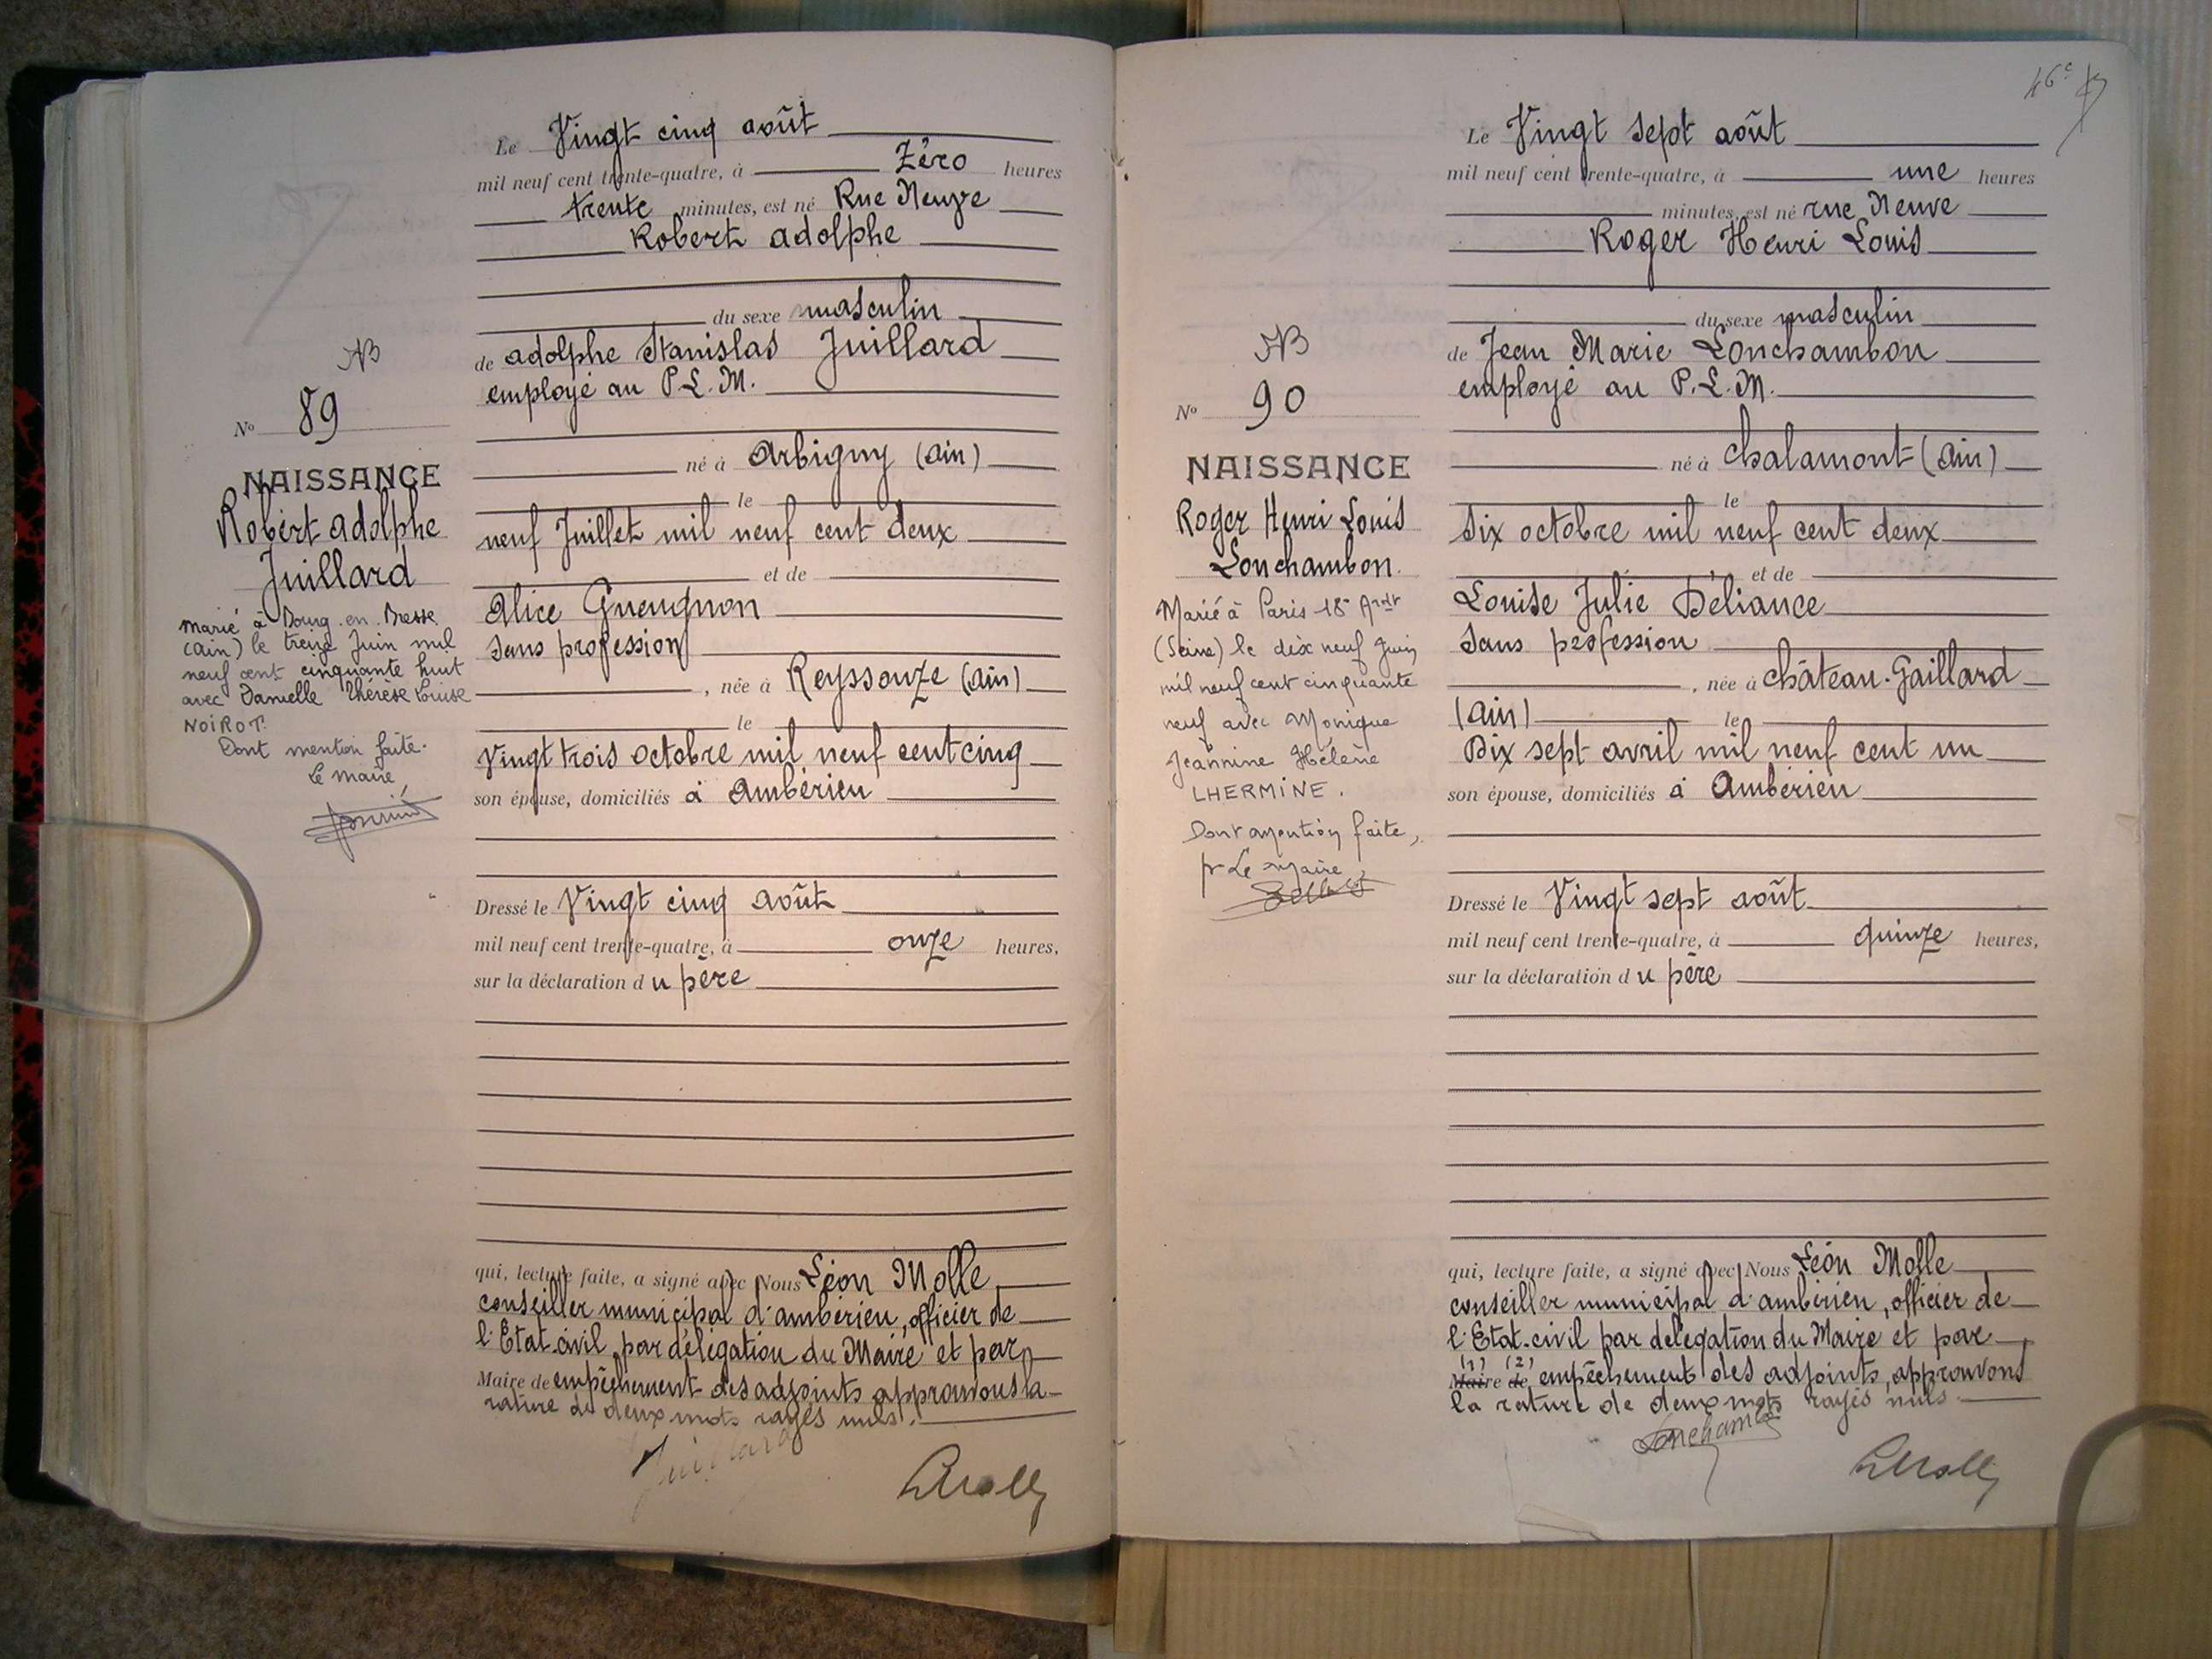 Le Vingt cinq août
mil neuf cent trente-quatre, à Zéro heures
trente minutes, est né Rue Neuve
Robert adolphe
du sexe masculin
de adolphe Stanislas Juillard
employé au P.L.M.
né à Arbigny (Ain)
le
neuf Juillet mil neuf cent deux
et de
Alice Gueugnon
sans profession
, née à Reyssouze (Ain)
le
Vingt trois octobre mil neuf cent cinq
son épouse, domiciliés à Ambérieu
Dressé le Vingt cinq août
mil neuf cent trente-quatre, à onze heures,
sur la déclaration du père
qui, lecture faite, a signé avec Nous Léon Molle
conseiller municipal d'ambérieu, officier de
l'Etat-civil par délégation du Maire et par
Maire de empêchement des adjoints approuvons la
rature de deux mots rayés nuls.
Juillard
LMolle
NB
No 89
NAISSANCE
Robert adolphe
Juillard
Marié à Bourg-en-Bresse
(Ain) le treize Juin mil
neuf cent cinquante huit
avec Danielle Thérèse Louise
NOIROT.
Dont mention faite.
Le maire,
46e
Le Vingt sept août
mil neuf cent trente-quatre, à une heures
minutes, est né rue Neuve
Roger Henri Louis
du sexe masculin
de Jean Marie Lonchambon
employé au P.L.M.
né à Chalamont (Ain)
le
Six octobre mil neuf cent deux
et de
Louise Julie Déliance
Sans profession
, née à Château-Gaillard
(Ain) le
Dix sept avril mil neuf cent un
son épouse, domiciliés à Ambérieu
Dressé le Vingt sept août
mil neuf cent trente-quatre, à quinze heures,
sur la déclaration du père
qui, lecture faite, a signé avec Nous Léon Molle
conseiller municipal d'ambérieu, officier de
l'Etat-civil par délégation du Maire et par
(1) (2)
Maire de empêchement des adjoints, approuvons
la rature de deux mots rayés nuls
Lonchambon
LMolle
NB
No 90
NAISSANCE
Roger Henri Louis
Lonchambon.
Marié à Paris 18e Ardt
(Seine) le dix neuf Juin
mil neuf cent cinquante
neuf avec Monique
Jeannine Hélène
LHERMINE.
Dont mention faite,
pr Le Maire,